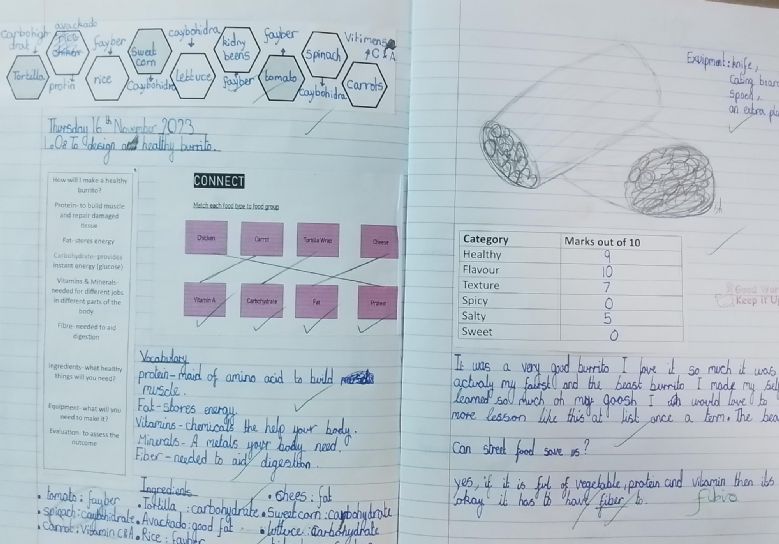 Carbohighdrat
avackado
protin
fayber
Sweet corn
caybohidra
kidny beens
fayber
spinach
Vitimens C & A
Tortilla
rice
Caybohidra
lettuce
fayber
tomato
Caybohidra
Carrots
Thursday 16th November 2023
design healthy burrito.
How will I make a healthy
burrito?
Protein- to build muscle
and repair damaged
tissue
Fat- stores energy
Carbohydrate- provides
instant energy (glucose)
Vitamins & Minerals-
needed for different jobs
in different parts of the
body
Fibre- needed to aid
digestion
Ingredients- what healthy
things will you need?
Equipment- what will you
need to make it?
Evaluation- to assess the
outcome
CONNECT
Match each food type to food group
Chicken Carrot Tortilla Wrap Cheese
Vitamin A Carbohydrate Fat Protein
Vocabulary
protein- maid of amino acid to build
muscle.
Fat- stores energy
Vitamins - chemicals the help your body.
Minerals - A metals your body need.
Fiber - needed to aid digestion.
Ingredients
• tomato : fayber
• spinach : caybohidrate
• Carrot : Vitamin C&A
• Tortilla : carbohydrate
• Avackado: good fat
• Rice : fayber
• chees : fat
• Sweet corn : caybohydrate
• lettuce : carbohydrate
Exuipment : knife,
Cating boar
Spoon,
an extra pla
Category Marks out of 10
Healthy 9
Flavour 10
Texture 7
Spicy 0
Salty 5
Sweet 0
Good Wor
Keep it Up
It was a very good burrito I love it so much it was
actualy my and the beast burrito I made my self
learned so much oh my goosh I would love to
more lesson like this at list once a term. The bea
Can street food save us?
yes, if it is ful of vegetable, protein and vitamin then its
okay it has to have fiber to.